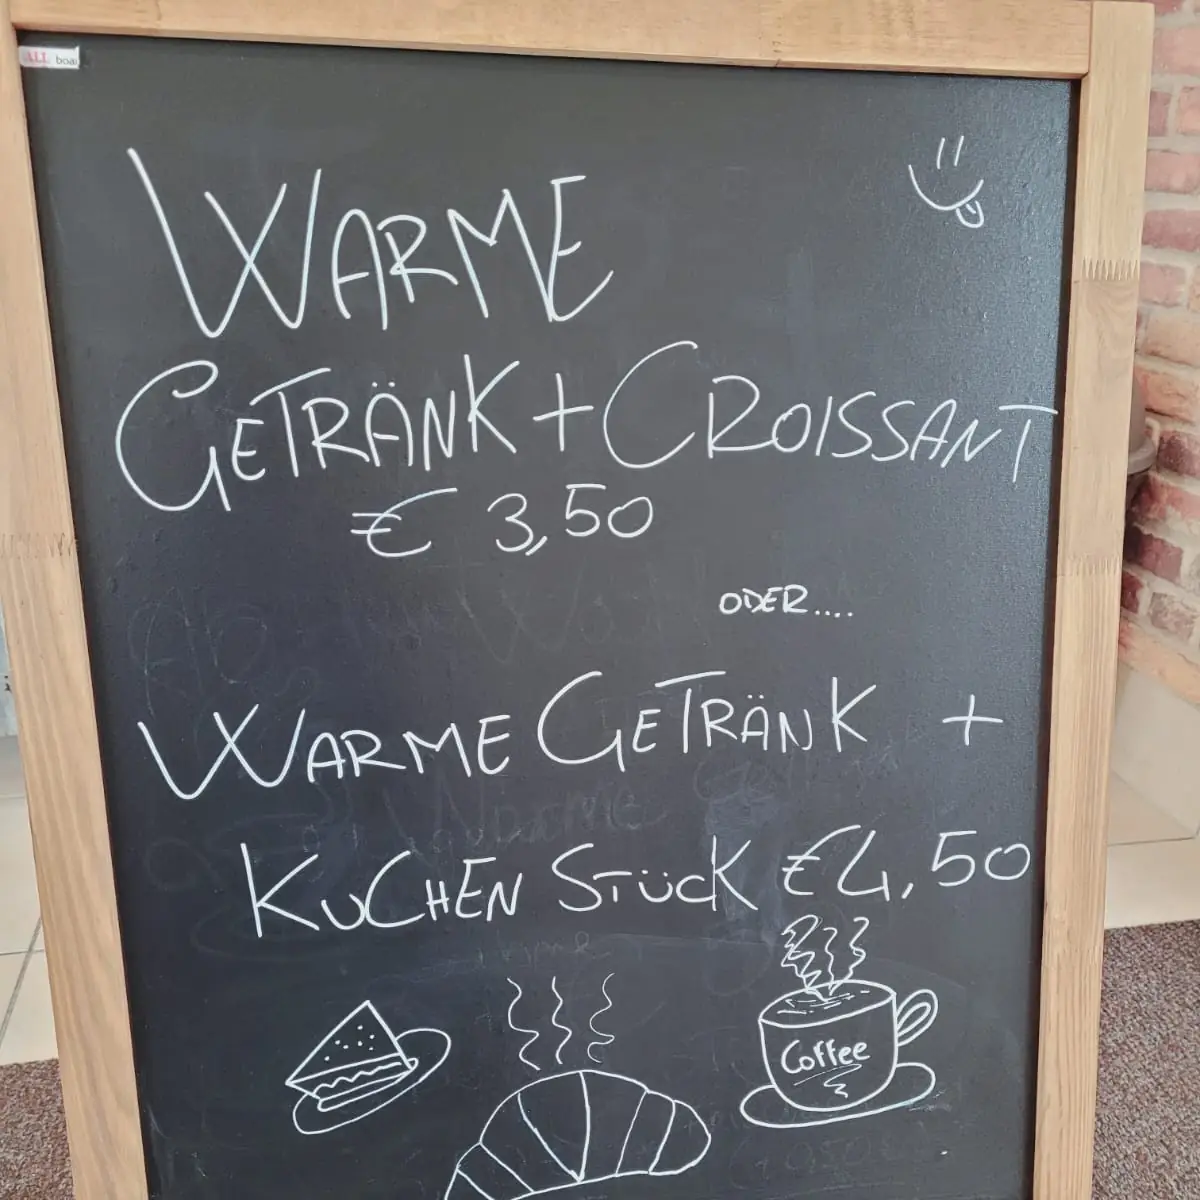 ALL boa
WARME
GETRÄNK + CROISSANT
€ 3,50
ODER....
WARME GETRÄNK +
KUCHEN STÜCK € 4,50
Coffee